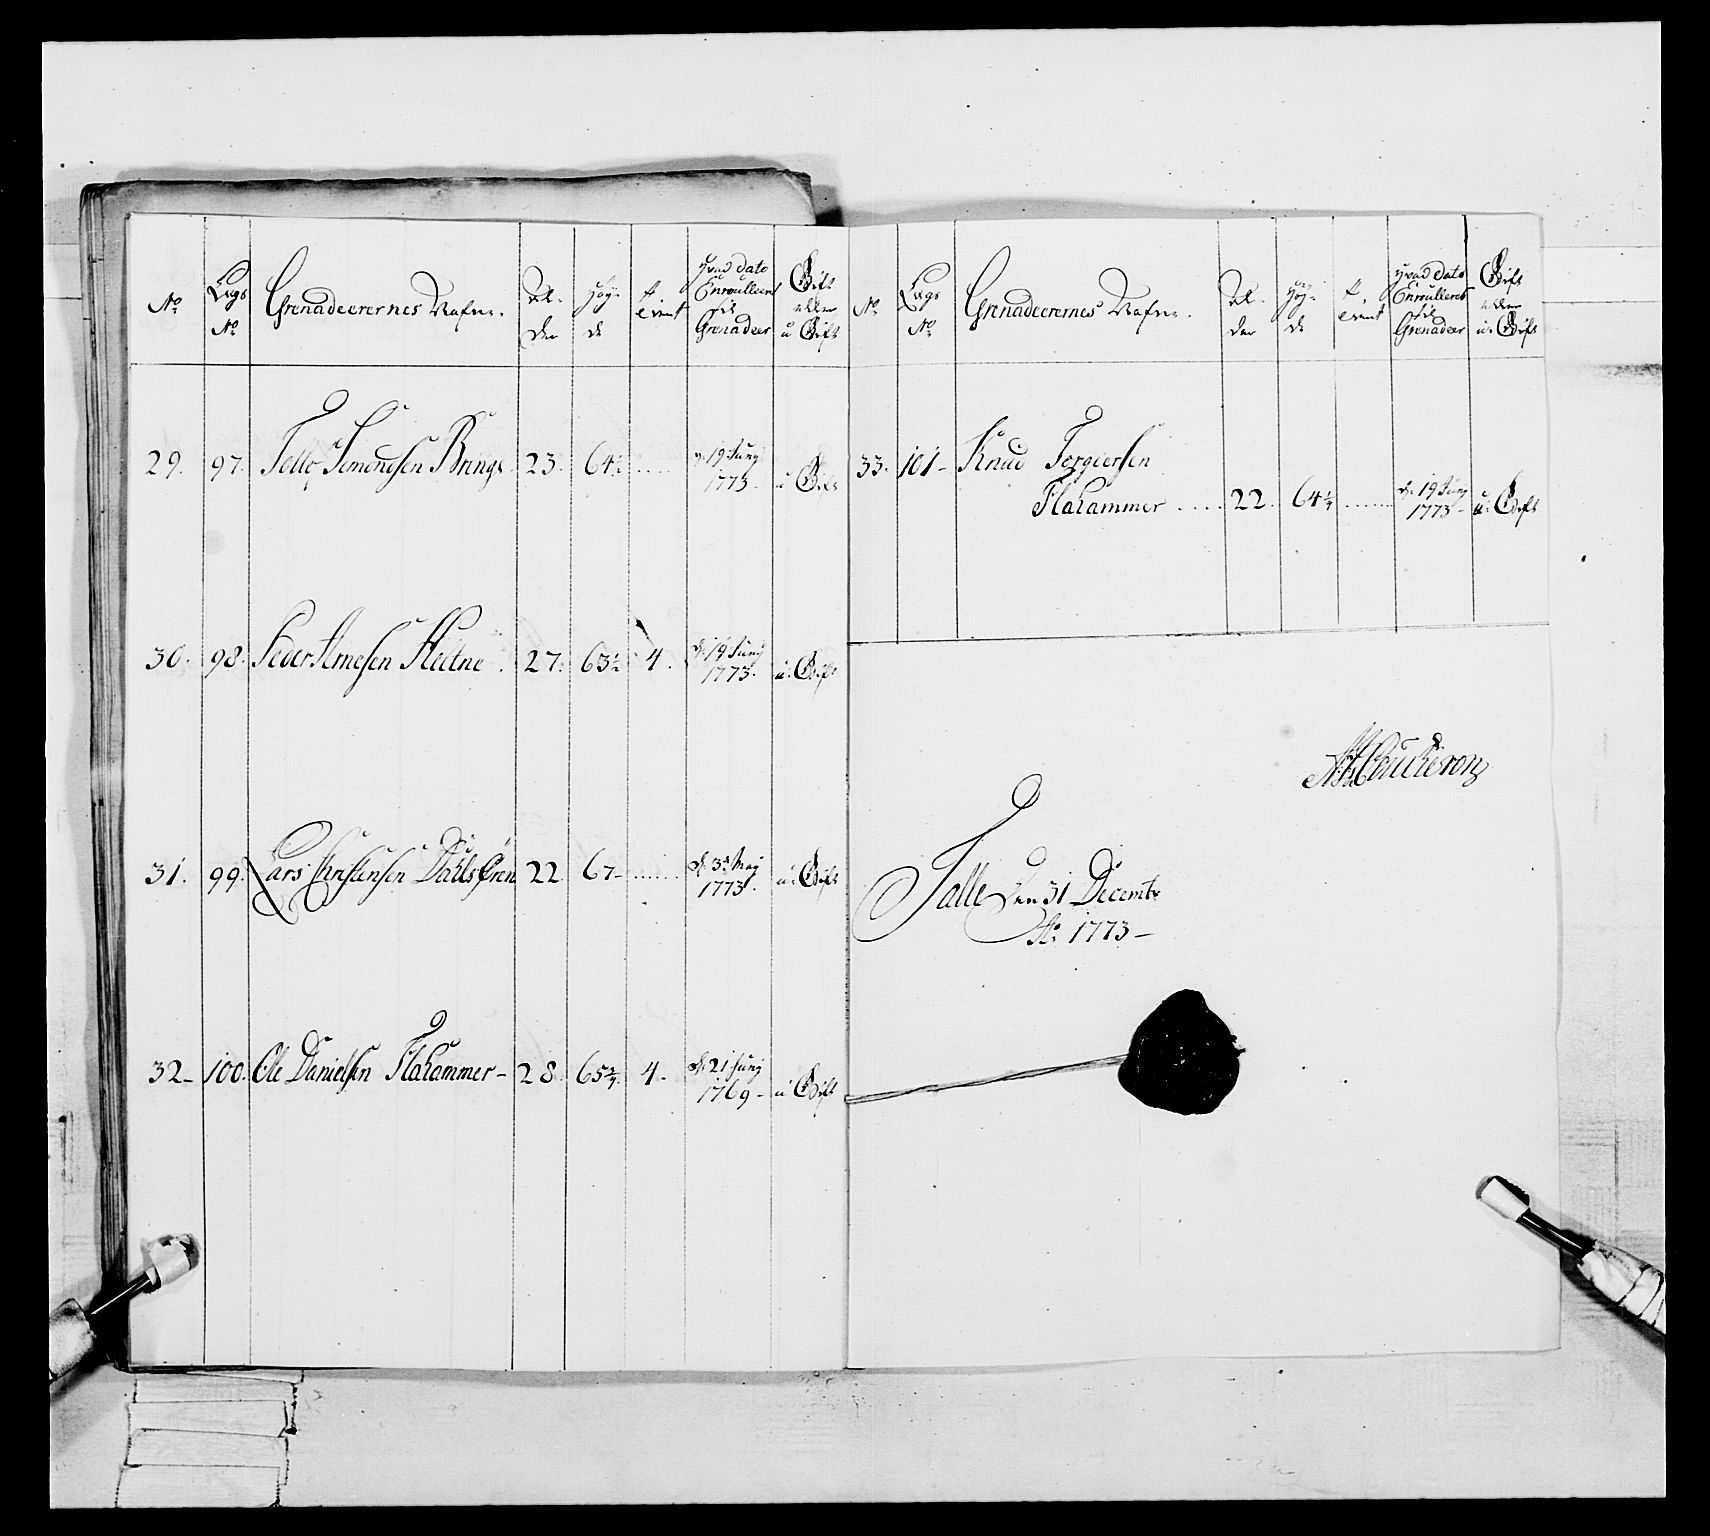 No
Lægs No
Grenadeerernes Nafne.
Al- der
Høy- de
Hvad dato Enroulleert til Grenadeer
Gift eller u Gift
29. 97. Simensen Brings 23. 64½ ..... 19 Junÿ 1773 u Gift
30. 98. Peder Arnesen 27. 63½ 4. d: 19 Junÿ 1773. u: Gift
31. 99. Lars Christensen 22. 67- ..... d: 3de Maÿ 1773. u: Gift
32- 100. Ole Danielsen Flahammer- 28. 65¾ 4. d: 21 Junÿ 1769- u Gift
No
Lægs No
Grenadeerernes Nafne.
Al- der
Høy- de
Hvad dato Enroulleret til Grenadeer
Gift eller u: Gift
33. 101- Knud Torgiersen
Flahammer ..... 22. 64¼ ..... d: 19 Junÿ 1773- u: Gift
Coucheron
Den 31 Decembr
Ao. 1773-